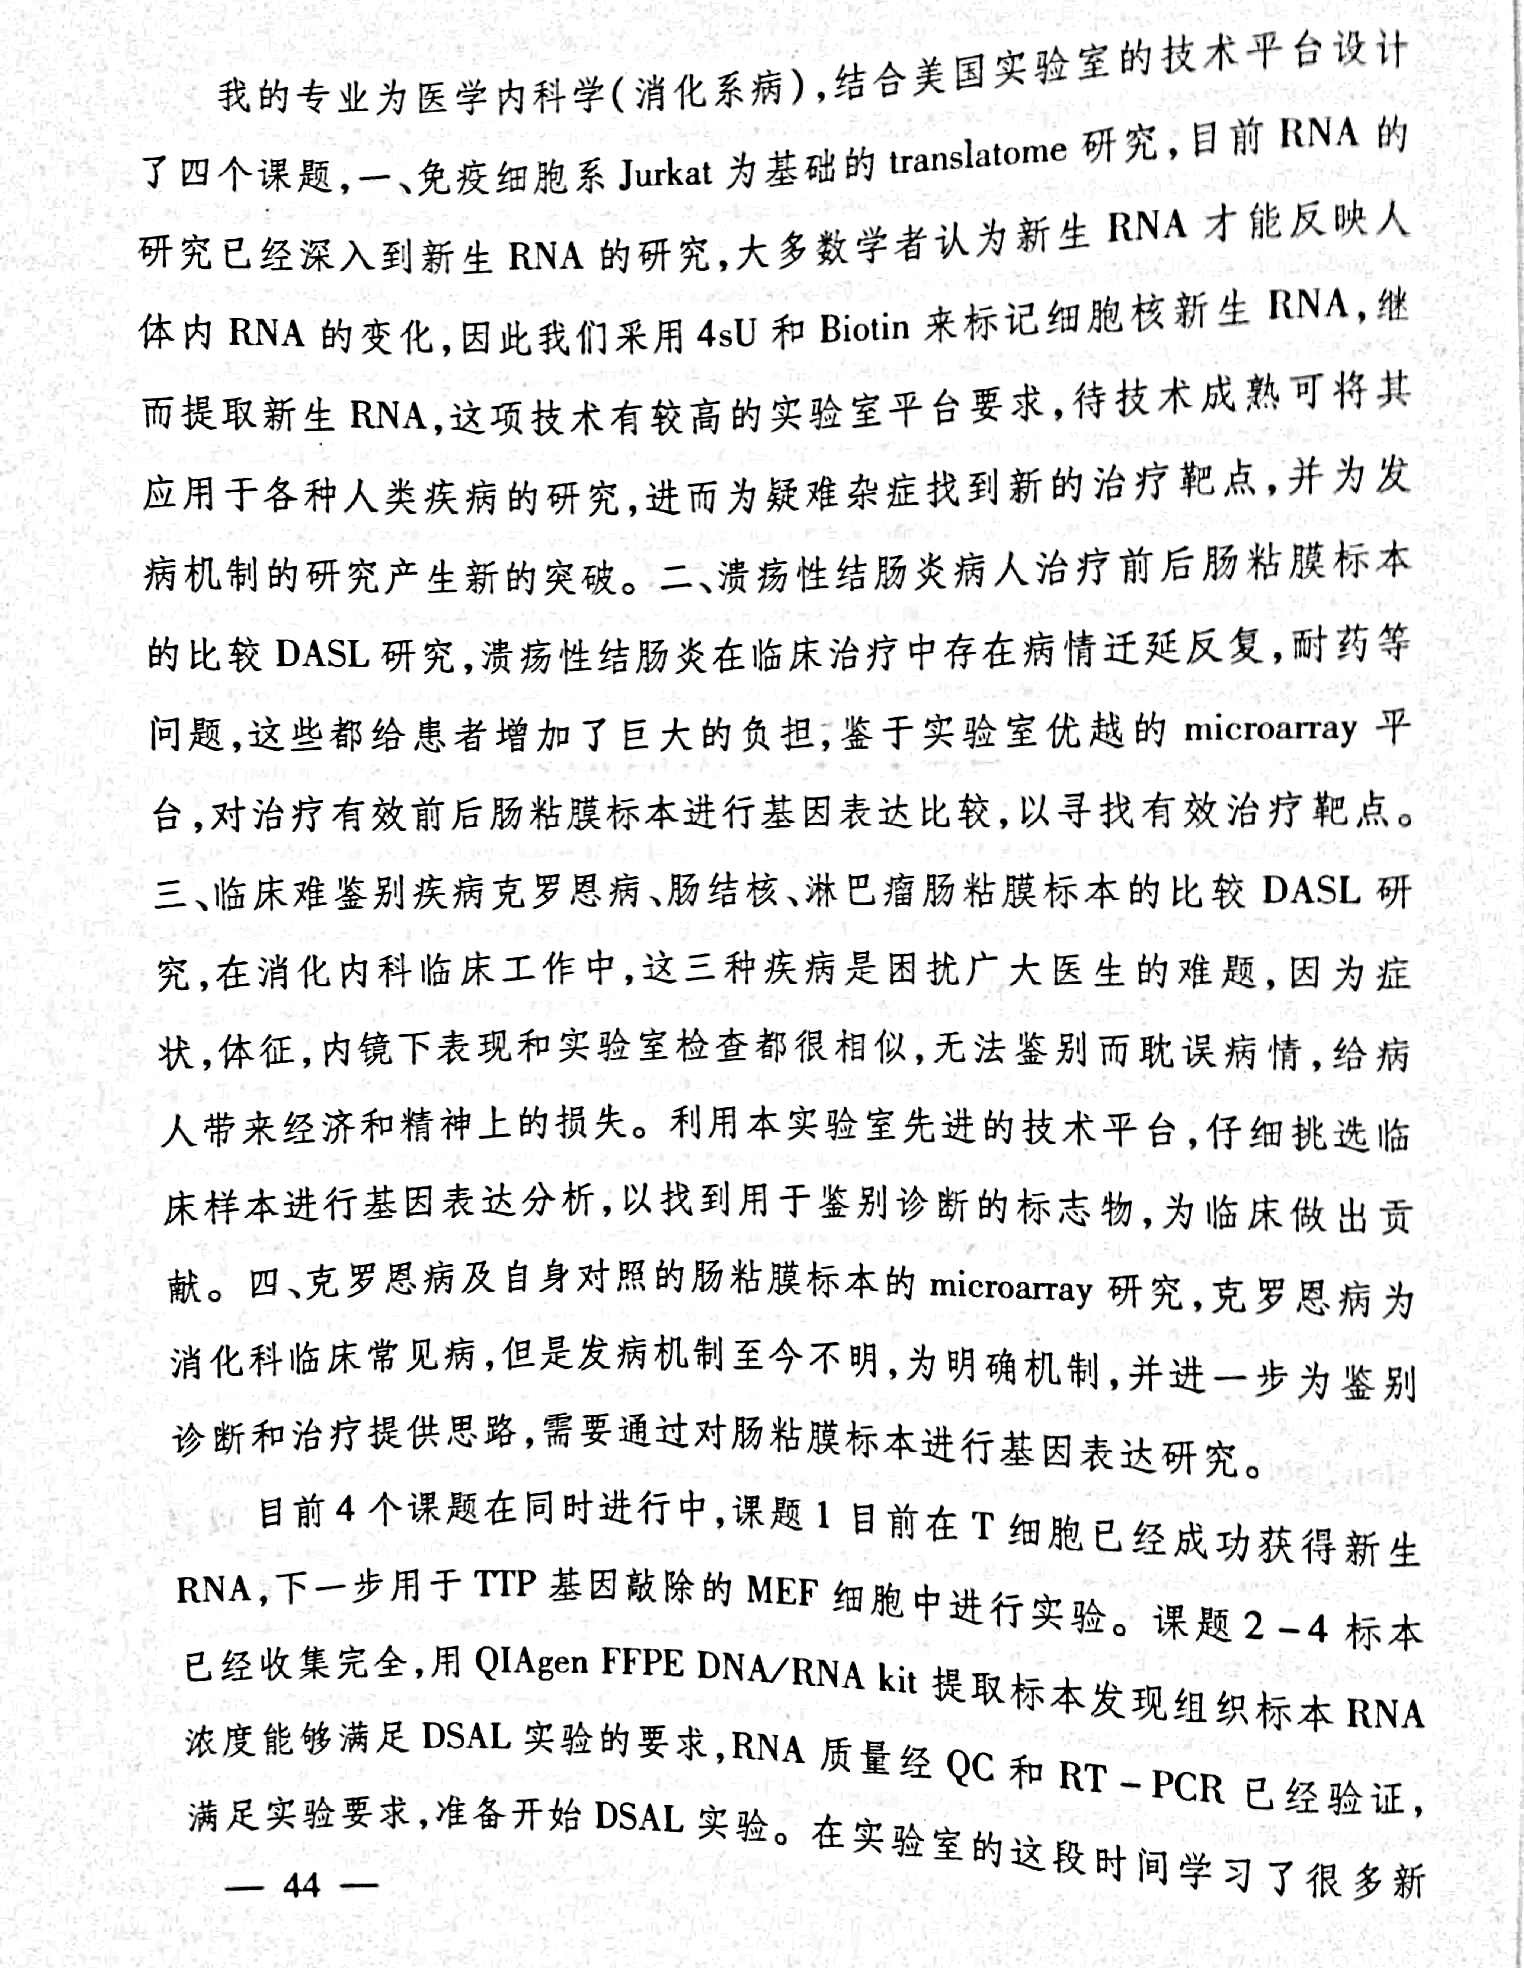 我的专业为医学内科学(消化系病),结合美国实验室的技术平台设计
了四个课题,一、免疫细胞系 Jurkat 为基础的 translatome 研究,目前 RNA 的
研究已经深入到新生 RNA 的研究,大多数学者认为新生 RNA 才能反映人
体内 RNA 的变化,因此我们采用 4sU 和 Biotin 来标记细胞核新生 RNA,继
而提取新生 RNA,这项技术有较高的实验室平台要求,待技术成熟可将其
应用于各种人类疾病的研究,进而为疑难杂症找到新的治疗靶点,并为发
病机制的研究产生新的突破。二、溃疡性结肠炎病人治疗前后肠粘膜标本
的比较 DASL 研究,溃疡性结肠炎在临床治疗中存在病情迁延反复,耐药等
问题,这些都给患者增加了巨大的负担,鉴于实验室优越的 microarray 平
台,对治疗有效前后肠粘膜标本进行基因表达比较,以寻找有效治疗靶点。
三、临床难鉴别疾病克罗恩病、肠结核、淋巴瘤肠粘膜标本的比较 DASL 研
究,在消化内科临床工作中,这三种疾病是困扰广大医生的难题,因为症
状,体征,内镜下表现和实验室检查都很相似,无法鉴别而耽误病情,给病
人带来经济和精神上的损失。利用本实验室先进的技术平台,仔细挑选临
床样本进行基因表达分析,以找到用于鉴别诊断的标志物,为临床做出贡
献。四、克罗恩病及自身对照的肠粘膜标本的 microarray 研究,克罗恩病为
消化科临床常见病,但是发病机制至今不明,为明确机制,并进一步为鉴别
诊断和治疗提供思路,需要通过对肠粘膜标本进行基因表达研究。
目前 4 个课题在同时进行中,课题 1 目前在 T 细胞已经成功获得新生
RNA,下一步用于 TTP 基因敲除的 MEF 细胞中进行实验。课题 2 – 4 标本
已经收集完全,用 QIAgen FFPE DNA/RNA kit 提取标本发现组织标本 RNA
浓度能够满足 DSAL 实验的要求,RNA 质量经 QC 和 RT – PCR 已经验证,
满足实验要求,准备开始 DSAL 实验。在实验室的这段时间学习了很多新
— 44 —